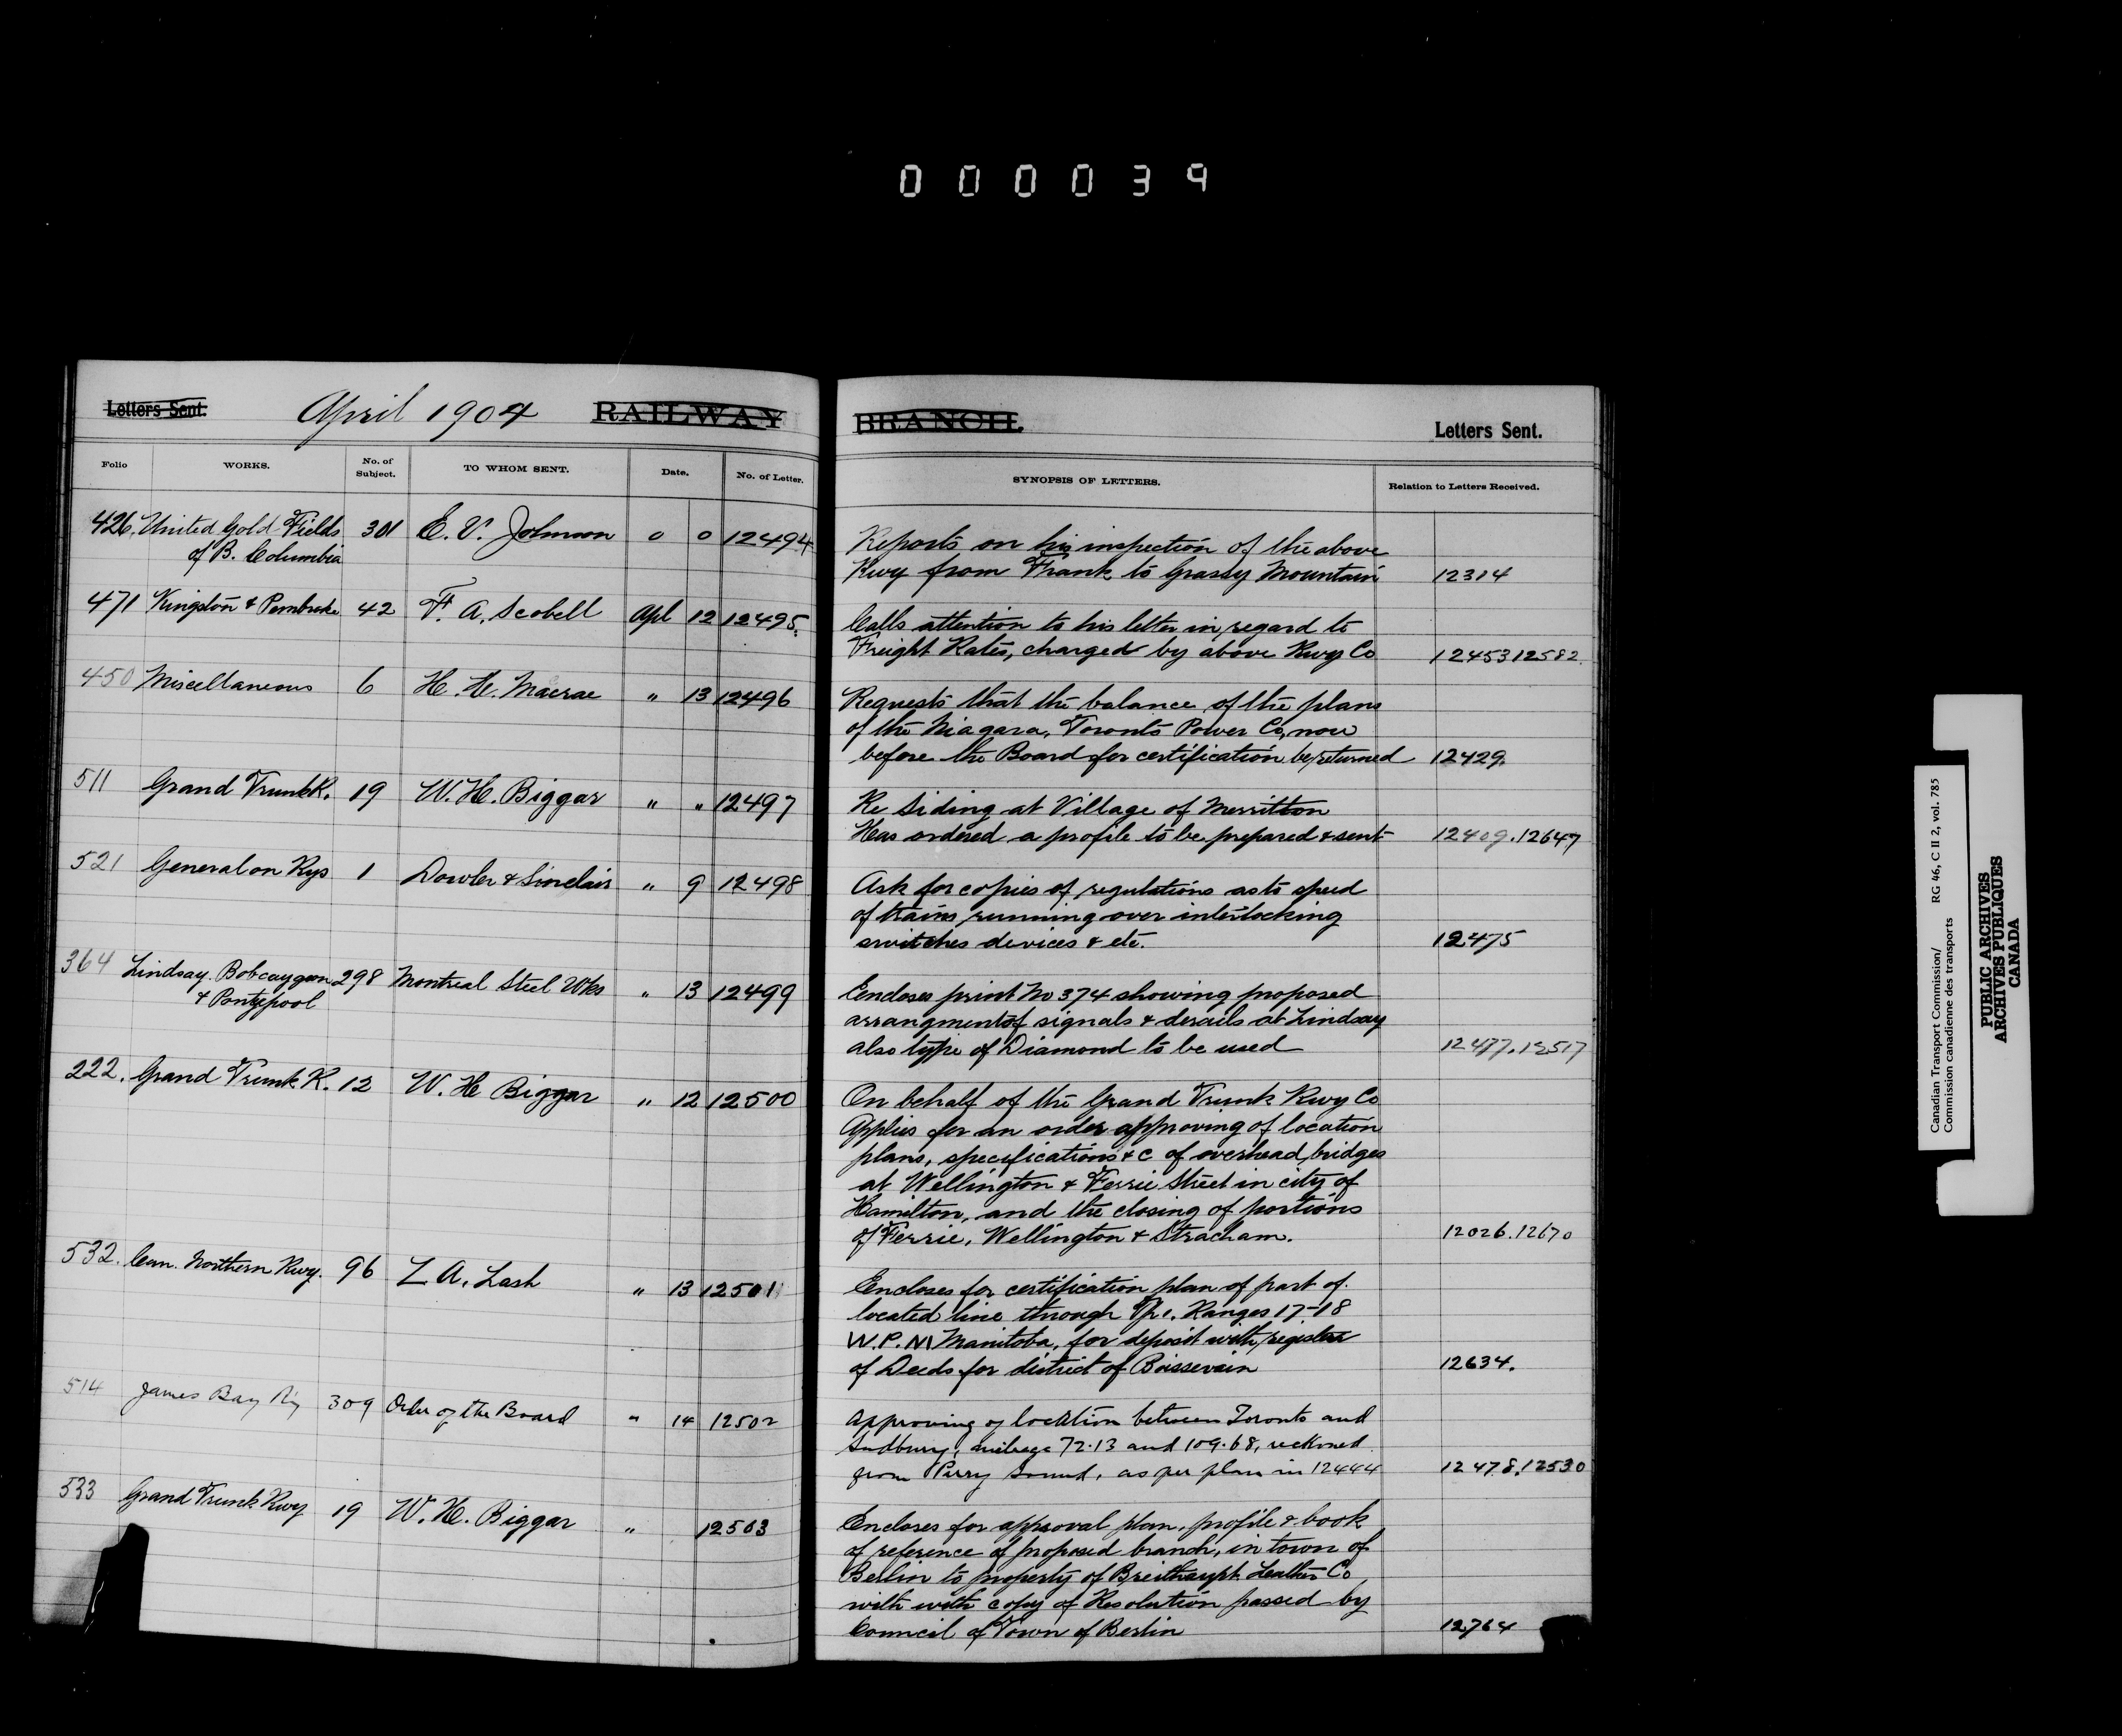 000039
Letters Sent. April 1904 RAILWAY BRANCH. Letters Sent.
Folio WORKS. No. of Subject. TO WHOM SENT. Date. No. of Letter. SYNOPSIS OF LETTERS. Relation to Letters Received.
426. United Gold Fields 301 E. V. Johnson o o 12494 Reports on his inspection of the above
of B. Columbia Rwy from Frank to Grassy Mountain 12314
471 Kingston & Pembroke 42 F. A. Scobell Apl 12 12495. Calls attention to his letter in regard to
Freight Rates, charged by above Rwy Co 12453 12582.
450 Miscellaneous 6 H. H. Macrae " 13 12496 Requests that the balance of the plans
of the Niagara, Toronto Power Co, now
before the Board for certification be returned 12429.
511 Grand Trunk R. 19 W. H. Biggar " " 12497 Re Siding at Village of Merritton
Has ordered a profile to be prepared & sent 12409.12647
521 General on Rys 1 Dowler & Sinclair " 9 12498 Ask for copies of regulations as to speed
of trains running over interlocking
switches devices & etc. 12475
364 Lindsay. Bobcaygeon 298 Montreal Steel Wks " 13 12499 Encloses print No 374 showing proposed
& Pontypool arrangment of signals & derails at Lindsay
also type of Diamond to be used 12477.12517
222. Grand Trunk R. 12 W. H Biggar " 12 12500 On behalf of the Grand Trunk Rwy Co
Applies for an order approving of location
plans, specifications & c of overhead bridges
at Wellington & Ferrie Street in city of
Hamilton, and the closing of portions
of Ferrie, Wellington & Stracham. 12026.12670
532. Can. Northern Rwy. 96 Z A. Lash " 13 12501 Encloses for certification plan of part of
located line through Tp. 1. Ranges 17-18
W.P.M Manitoba, for deposit with registrar
of Deeds for district of Boissevain 12634.
514 James Bay Ry 309 Order of the Board " 14 12502 Approving of location between Toronto and
Sudbury, mileage 72.13 and 109.68, reckoned
from Parry Sound, as per plan in 12444 12478.12530
533 Grand Trunk Rwy 19 W. H. Biggar " 12503 Encloses for approval plan, profile & book
of reference of proposed branch, in town of
Berlin to property of Breithaupt Leather Co
with with copy of Resolution passed by
Council of Town of Berlin 12764
Canadian Transport Commission/ RG 46, C II 2, vol. 785
Commission canadienne des transports
PUBLIC ARCHIVES
ARCHIVES PUBLIQUES
CANADA